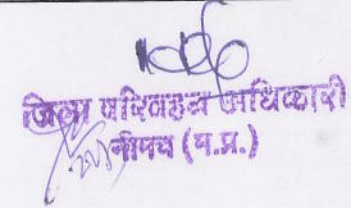 जिला परिवहन अधिकारी
नीमच (म.प्र.)